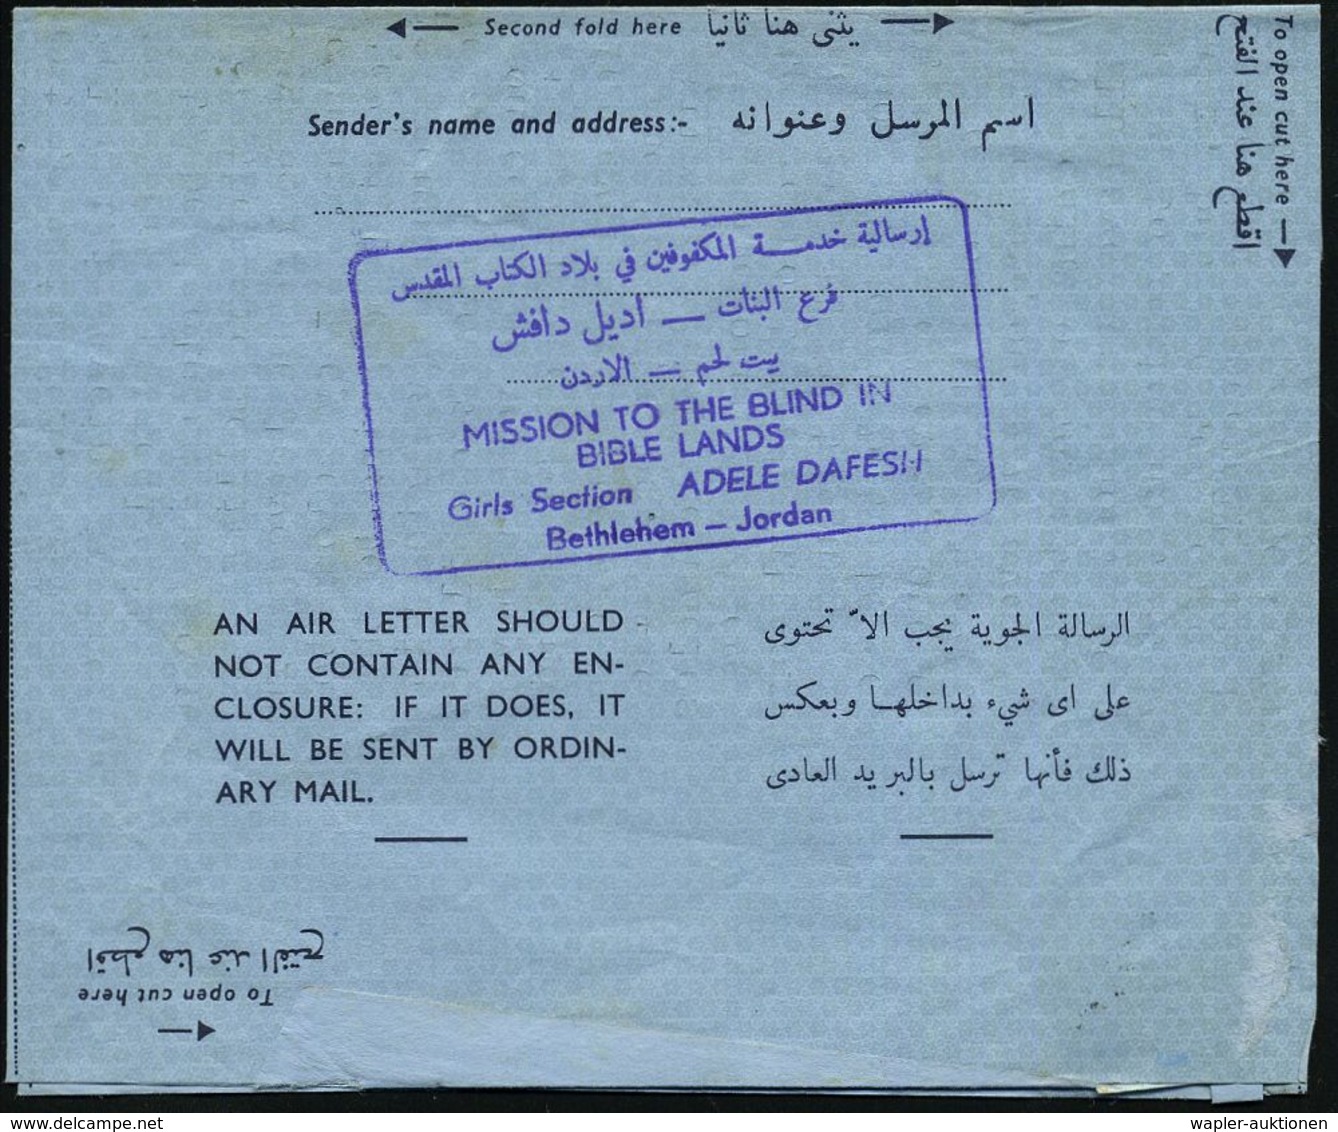 Second fold here يثنى هنا ثانيا
To open cut here
اقطع هنا عند الفتح
Sender's name and address:- اسم المرسل وعنوانه
إرسالية خدمة المكفوفين في بلاد الكتاب المقدس
فرع البنات — اديل دافش
بيت لحم — الاردن
MISSION TO THE BLIND IN
BIBLE LANDS
Girls Section ADELE DAFESH
Bethlehem — Jordan
AN AIR LETTER SHOULD
NOT CONTAIN ANY EN-
CLOSURE: IF IT DOES, IT
WILL BE SENT BY ORDIN-
ARY MAIL.
الرسالة الجوية يجب الاّ تحتوى
على اى شيء بداخلها وبعكس
ذلك فأنها ترسل بالبريد العادى
اقطع هنا عند الفتح
To open cut here
wapler-auktionen